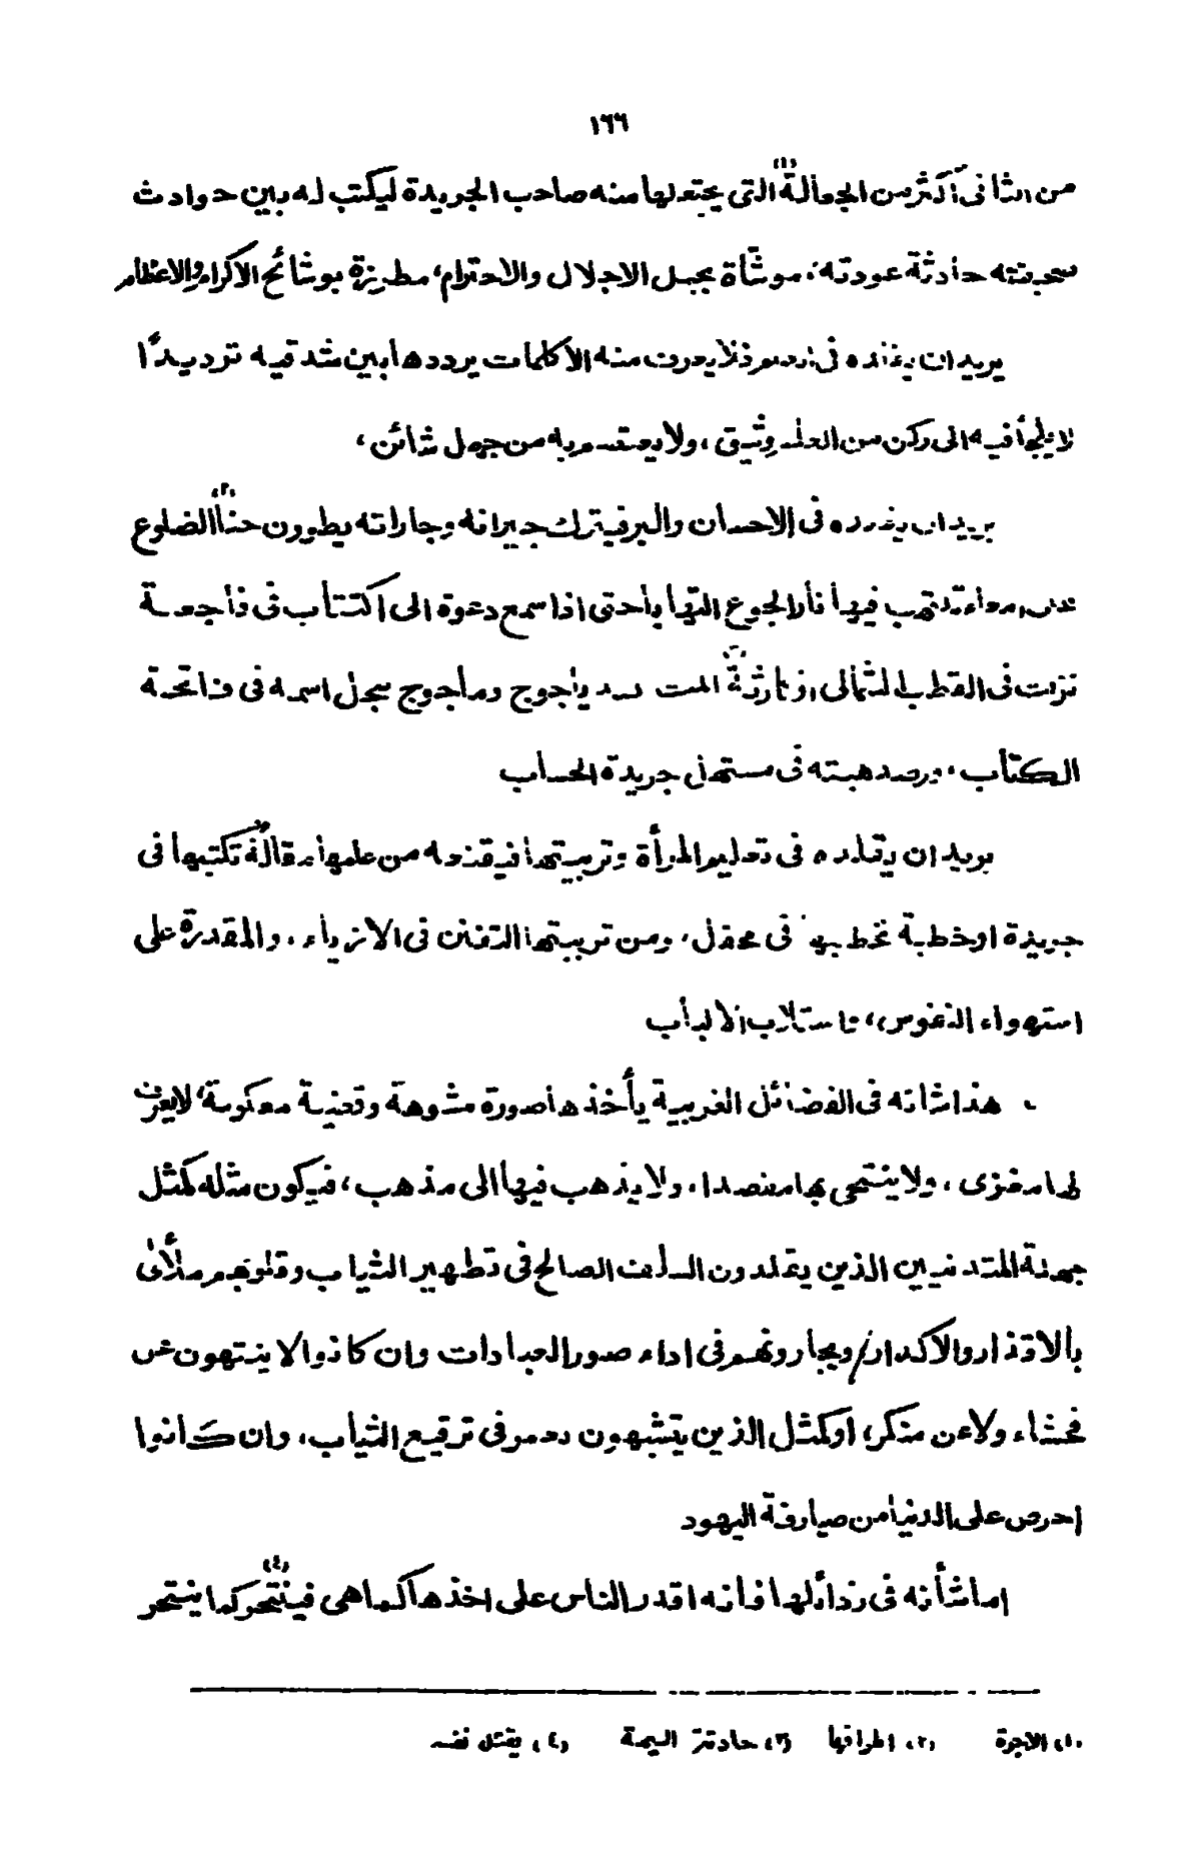 ١٦٦
من الثاني أكثر من الجعالة (١) التي يجتعلها منه صاحب الجريدة ليكتب له بين حوادث
صحيفته حادثة عودته، موشاة بجمل الاجلال والاحترام، مطرزة بوشائح الاكرام والاعظام
يريد ان يقلده في العلم فلا يعرف منه الا كلمات يرددها بين شدقيه ترديدًا
لا يلجأ فيه الى ركن من العلم وثيق، ولا يعتصم به من جهل شائن،
يريد ان يقلده في الاحسان والبر فيترك جيرانه وجاراته يطوون حنايا (٢) الضلوع
على امعاء تلتهب فيها نار الجوع التهابا حتى اذا سمع دعوة الى اكتتاب في فاجعة
نزلت في القطب الشمالي او كارثة (٣) المت بسد يأجوج ومأجوج سجل اسمه في فاتحة
الكتاب، ورصد هبته في مستهل جريدة الحساب
يريد ان يقلده في تعليم المرأة وتربيتها فيقنعه من علمها مقالة تكتبها في
جريدة او خطبة تخطب بها في محفل، ومن تربيتها التفنن في الازياء، والمقدرة على
استهواء النفوس، واستلاب الالباب
هذا شانه في الفضائل الغربية يأخذها صورة مشوهة وقضية معكوسة، لا يعرف
لها مغزى، ولا ينتحي بها مقصدا، ولا يذهب فيها الى مذهب، فيكون مثله كمثل
جهلة المتدينين الذين يقلدون السلف الصالح في تطهير الثياب وقلوبهم ملأى
بالاقذار والاكدار، ويجارونهم في اداء صور العبادات وان كانوا لا ينتهون عن
فحشاء ولا عن منكر، او كمثل الذين يتشبهون بعمر في ترقيع الثياب، وان كانوا
احرص على الدنيا من صيارفة اليهود
اما شأنه في رذائلها فانه اقدر الناس على اخذها كما هي فينتحر (٤) كما ينتحر
(١) الاجرة (٢) اطرافها (٣) حادثة اليمة (٤) يقتل نفسه